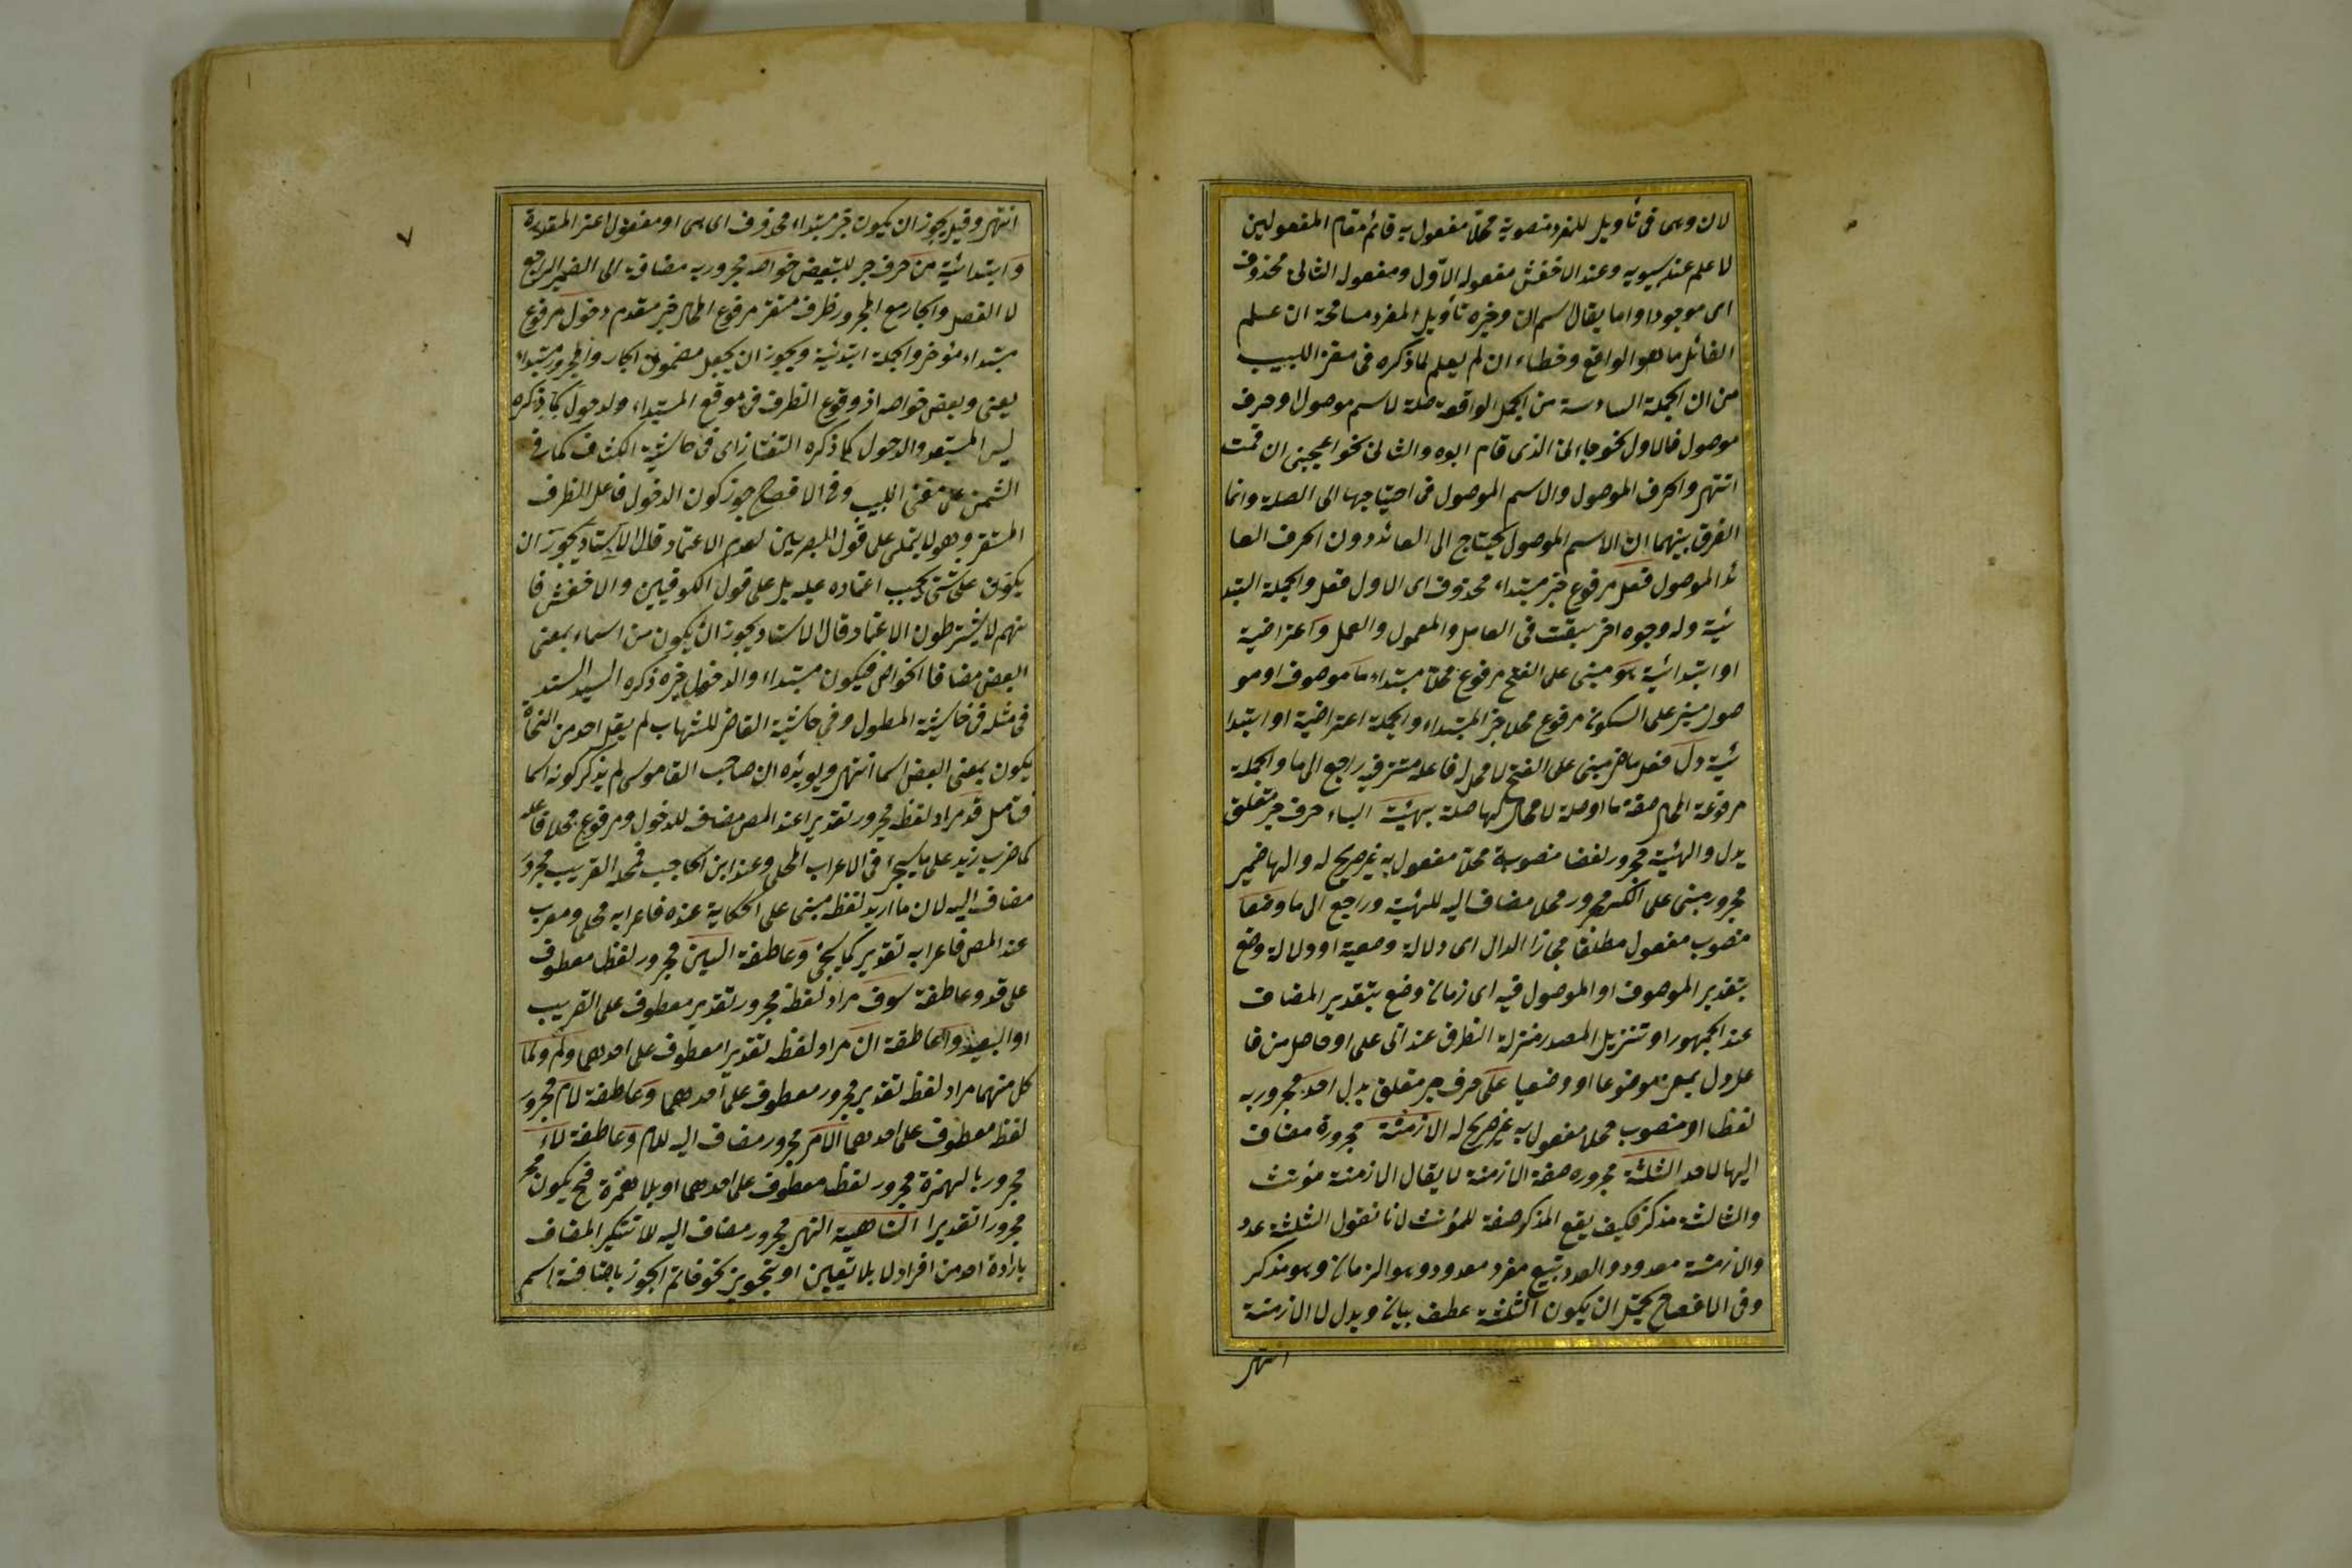 لان وهى فى تأويل للمفرد منصوبة محلا مفعول به قائم مقام المفعولين
لاعلم عند سيبويه وعند الاخفش مفعوله الاول ومفعوله الثانى محذوف
اى موجودا واما يقال اسم ان وخبره تأويل المفرد مسامحة ان علم
القائل ما هو الواقع وخطاء ان لم يعلم لما ذكره فى مغنى اللبيب
من ان الجملة السادسة من الجمل الواقعة صلة لاسم موصول او حرف
موصول فالاول نحو جاءنى الذى قام ابوه والثانى نحو اعجبنى ان قمت
انتهى والحرف الموصول والاسم الموصول فى احتياجها الى الصلة وانما
الفرق بينهما ان الاسم الموصول يحتاج الى العائد دون الحرف العا
ئد الموصول فعل مرفوع خبر مبتداء محذوف اى الاول فعل والجملة ابتدا
ئية وله وجوه اخر سبقت فى العامل والمعمول والعمل واعتراضية
او ابتدائية هو مبنى على الفتح مرفوع محلا مبتداء ما موصوف او مو
صول مبنى على السكون مرفوع محلا خبر المبتداء والجملة اعتراضية او ابتدا
ئية دل فعل ماض مبنى على الفتح لا محل له فاعله مستتر فيه راجع الى ما والجملة
مرفوعة المحل صفة ما او صلة لا محل لها صلة بهيئية الباء حرف جر متعلق
بدل والهيئة مجرور لفظا منصوبة محلا مفعول به غير صريح له والها ضمير
مجرور مبنى على الكسر مجرور محلا مضاف اليه للهيئة وراجع الى ما وضعا
منصوب مفعول مطلقا مجازا الدال اى دلالة وضعية او دلالة وضع
بتقدير الموصوف او الموصول فيه اى زمان وضع بتقدير المضاف
عند الجمهور او تنزيل المصدر منزلة الظرف عند ابى على او حاصل من فا
عل دل بمعنى موضوعا او وضعيا على حرف جر متعلق بدل احد مجرور به
لفظا او منصوب محلا مفعول به غير صريح له الازمنة مجرورة مضاف
اليها لاحد الثلثة مجروره صفة الازمنة لا يقال الازمنة مؤنث
والثالثة مذكر فكيف يقع المذكر صفة للمؤنث لانا نقول الثلثة عدد
والازمنة معدود والعدد تبيع مفرد معدود وهو الزمان وهو مذكر
وفى الافصاح يحتمل ان يكون الثلثة عطف بيان وبدل لا الازمنة
انتهى
٧
انتهى وقيل يجوز ان يكون خبر مبتداء محذوف اى هى او مفعول اعنى المقدرة
وابتدائية من حرف جر للتبعيض خواصه مجرور به مضافة الى الضمير الراجع
لا الفعل والجار مع المجرور ظرف مستقر مرفوع المحل خبر مقدم دخول مرفوع
مبتداء مؤخر والجملة ابتدئية ويجوز ان يجعل مضمون الجار والمجرور مبتداء
يعنى وبعض خواصه اذ وقوع الظرف فى موقع المبتداء ولدخول كما ذكره
ليس المستبعد والدخول كما ذكره التفتازاى فى حاشية الكشاف كما فى
الشمنى على مغنى اللبيب وفى الافصاح جوز كون الدخول فاعل الظرف
المستقر وهو لا يتمشى على قول البصريين لعدم الاعتماد قال الاستاد يجوز ان
يكون على شئ يجب اعتماده عليه بل على قول الكوفيين والاخفش فا
نهم لا يشترطون الاعتماد قال الاستاد يجوز ان يكون من اسماء بمعنى
البعض مضافا الخواص فيكون مبتداء والدخول خبره ذكره السيد السند
فى مثله فى حاشية المطول وفى حاشية القاضى للشهاب لم يقل احد من النحاة
يكون بمعنى البعض اسما انتهى ويويده ان صاحب القاموس لم يذكر كونه اسما
فتامل قد مراد لفظه مجرور تقديرا عند المص مضاف للدخول ومرفوع محلا فاعله
كما ضرب زيد على ما سيجئ فى الاعراب المحلى وعند ابن الحاجب فمحله القريب مجرور
مضاف اليه لان ما اريد لفظه مبنى على الحكاية عنده فاعرابه محلى ومعرب
عند المص فاعرابه تقدير كما يجئ وعاطفة السين مجرور لفظا معطوف
على قد وعاطفة سوف مراد لفظه مجرور تقدير معطوف على القريب
او البعيد والعاطفة ان مراد لفظه تقديرا معطوف على احدهما ولم ولما
كل منهما مراد لفظه تقدير مجرور معطوف على احدهما وعاطفة لام مجرور
لفظه معطوف على احدهما الامر مجرور مضاف اليه للام وعاطفة لاء
مجرور بالهمزة مجرور لفظا معطوف على احدهما او بلا همزة فح يكون مجر
مجرورا تقديرا الناهية النهى مجرور مضاف اليه للا تنكير المضاف
بارادة احد من افراد لا بلا تعيين او بتجويز نحو خاتم الجوز باضافة اسم